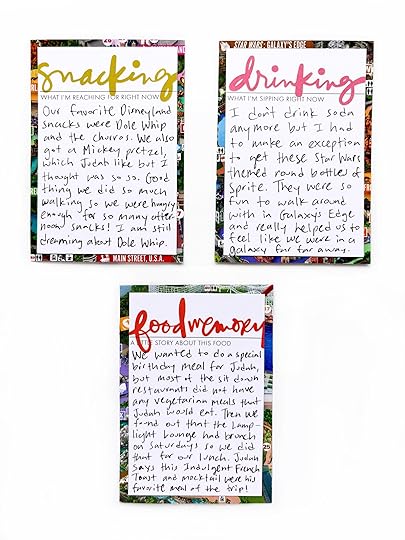 snacking
WHAT I'M REACHING FOR RIGHT NOW
Our favorite Disneyland
snacks were Dole Whip
and the churros. We also
got a Mickey pretzel,
which Judah like but I
thought was so so. Good
thing we did so much
walking so we were hungry
enough for so many after-
noon snacks! I am still
dreaming about Dole Whip.
MAIN STREET, U.S.A.
STAR WARS: GALAXY'S EDGE
drinking
WHAT I'M SIPPING RIGHT NOW
I don't drink soda
anymore but I had
to make an exception
to get these Star Wars
themed round bottles of
Sprite. They were so
fun to walk around
with in Galaxys Edge
and really helped us to
feel like we were in a
galaxy far far away.
food memory
A LITTLE STORY ABOUT THIS FOOD
We wanted to do a special
birthday meal for Judah,
but most of the sit down
restaurants did not have
any vegetarian meals that
Judah would eat. Then we
found out that the Lamp-
light Lounge had brunch
on Saturdays so we did
that for our lunch. Judah
says this Indulgent French
Toast and mocktail were his
favorite meal of the trip!